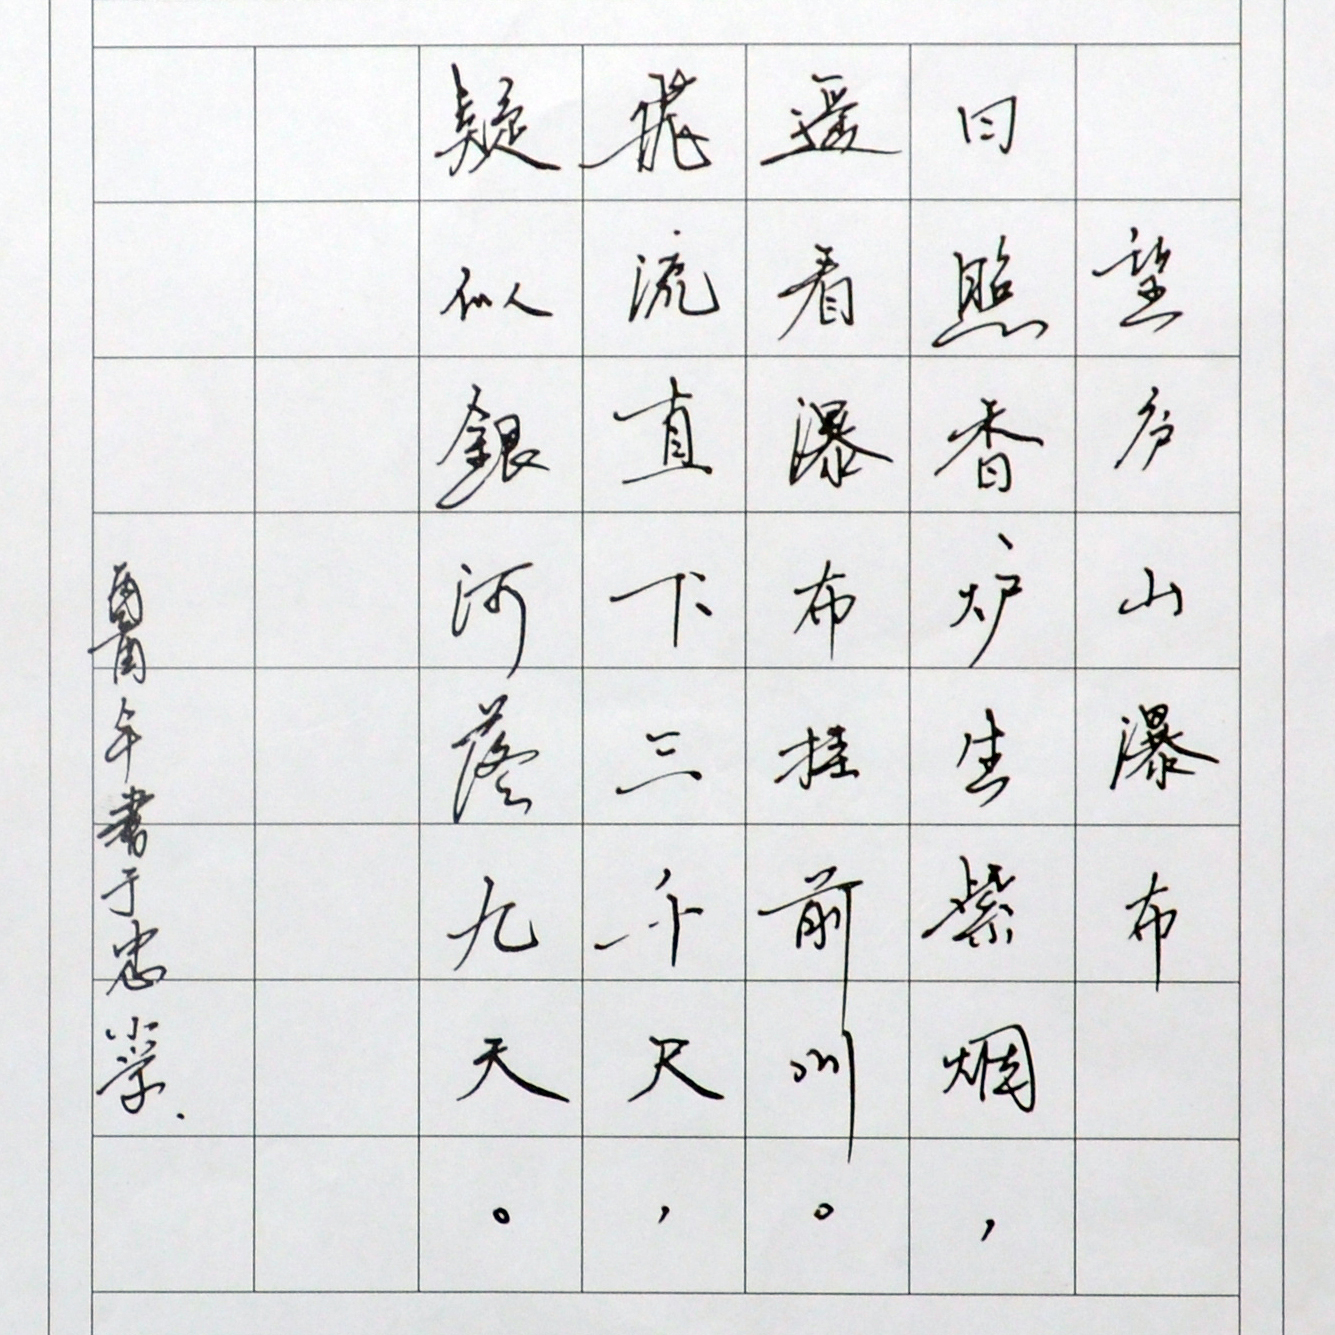 望庐山瀑布
日照香炉生紫烟，
遥看瀑布挂前川。
飛流直下三千尺，
疑似銀河落九天。
年書于忠小学